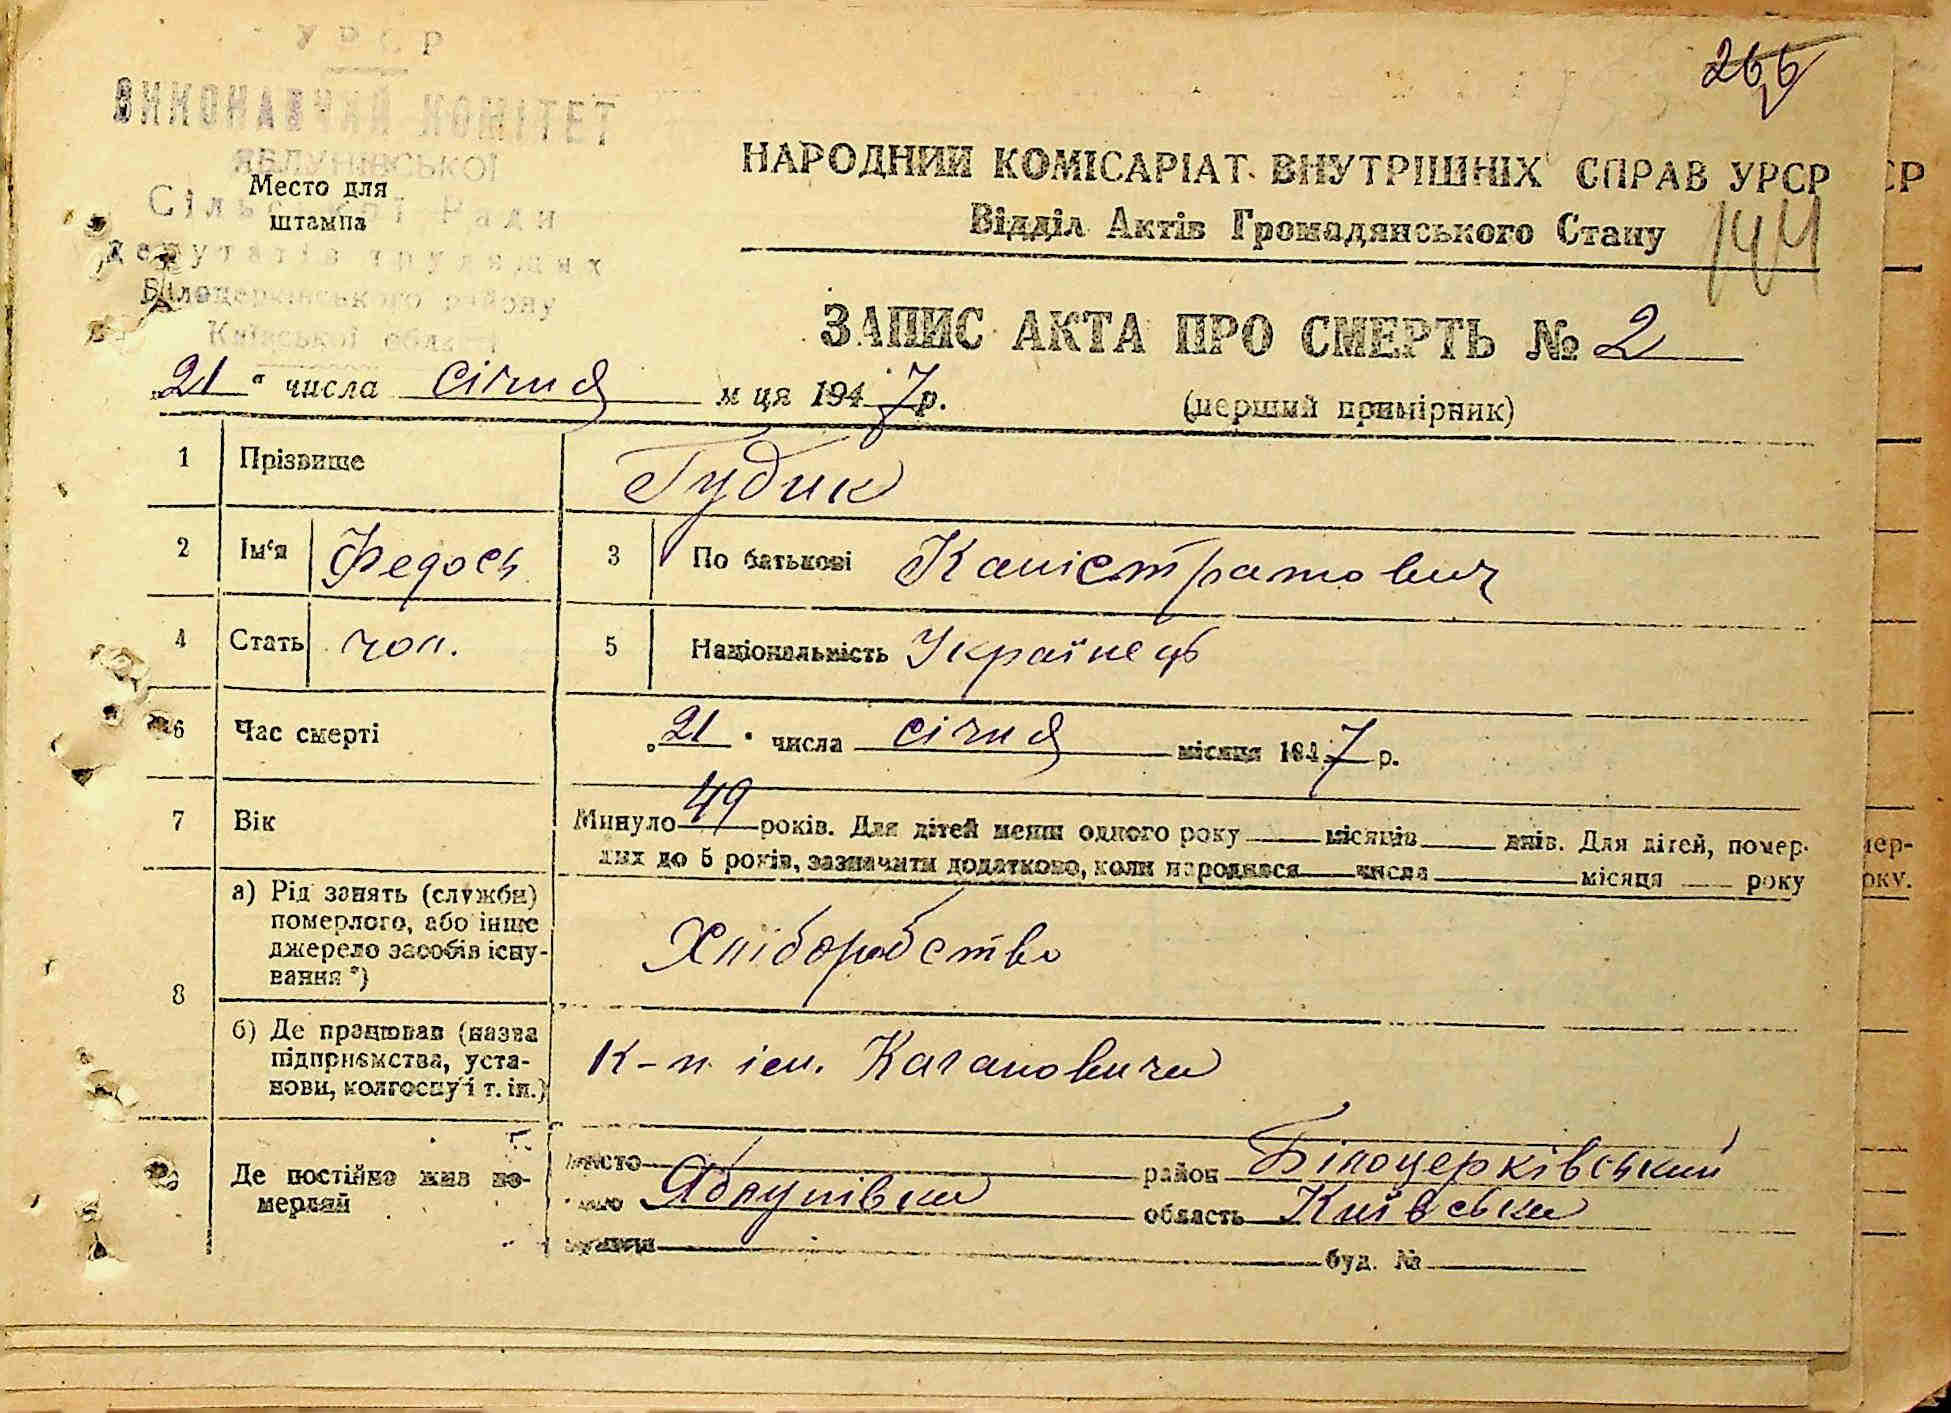 УРСР
ВИКОНАВЧИЙ КОМІТЕТ
ЯБЛУНІВСЬКОЇ
Сільської Ради
депутатів трудящих
Білоцерківського району
Київської області
Место для
штампа
266
НАРОДНИЙ КОМІСАРІАТ ВНУТРІШНІХ СПРАВ УРСР
Відділ Актів Громадянського Стану
144
ЗАПИС АКТА ПРО СМЕРТЬ № 2
„21“ числа січня м ця 1947 р.
(перший примірник)
1 Прізвище Гудик
2 Ім‘я Федось 3 По батькові Каністратович
4 Стать чол. 5 Національність Українець
6 Час смерті „21“ числа січня місяця 1947 р.
7 Вік Минуло 49 років. Для дітей менш одного року місяців днів. Для дітей, помер-
лих до 5 років, зазначити додатково, коли народився числа місяця року
8 а) Рід занять (служби)
померлого, або інше
джерело засобів існу-
вання *)
Хліборобство
б) Де працював (назва
підприємства, уста-
нови, колгоспу і т. ін.)
К-п ім. Кагановича
Де постійно жив по-
мерлий
місто район Білоцерківський
Яблунівка область Київська
вулиця буд. №
СР
мер-
оку.